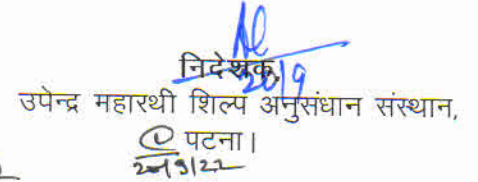 निदेशक,
20/9
उपेन्द्र महारथी शिल्प अनुसंधान संस्थान,
पटना।
20/9/22